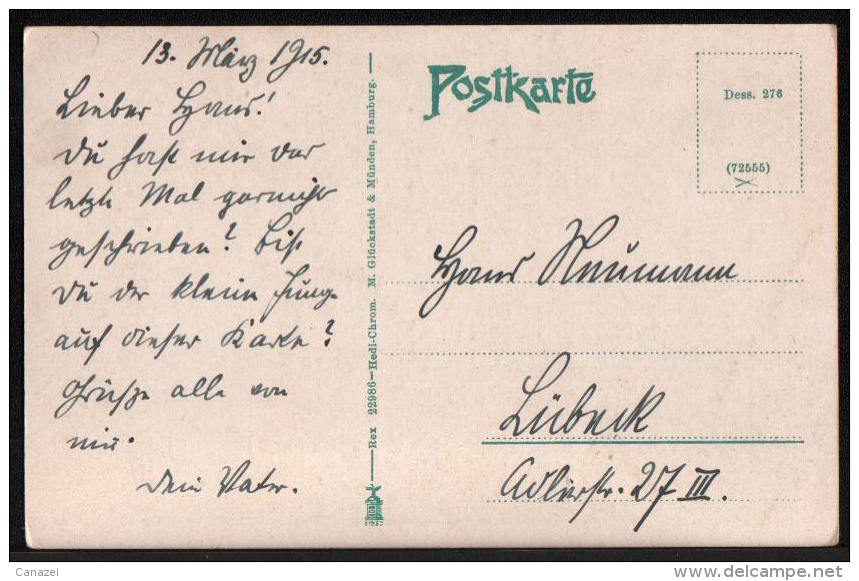 13. März 1915.
Lieber Hans!
Du hast mir das
letzte Mal garnicht
geschrieben? Bist
Du der kleine Junge
auf dieser Karte?
Grüße alle von
mir.
Dein Vater.
Rex 22986—Hedi-Chrom. M. Glückstadt & Münden, Hamburg.
Postkarte
Dess. 276
(72555)
Hans Neumann
Lübeck
Adlerstr. 27 III.
Canazei
delcampe.net